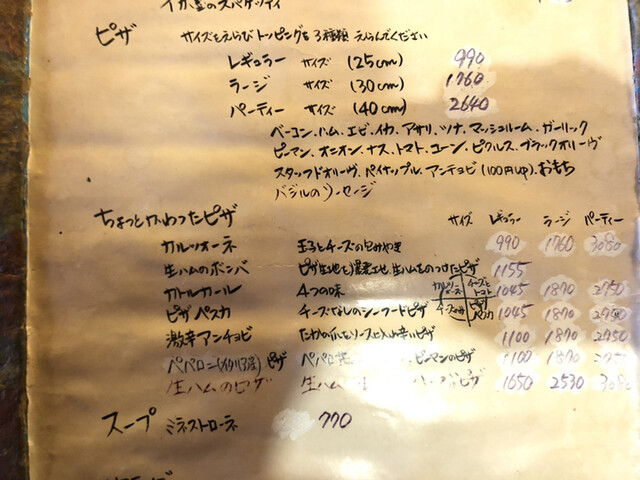 イカ墨のスパゲッティ
ピザ サイズをえらびトッピングを3種類えらんでください
レギュラー サイズ (25cm) 990
ラージ サイズ (30cm) 1760
パーティー サイズ (40cm) 2640
ベーコン、ハム、エビ、イカ、アサリ、ツナ、マッシュルーム、ガーリック
ピーマン、オニオン、ナス、トマト、コーン、ピクルス、ブラックオリーヴ
スタッフドオリーヴ、パイナップル、アンチョビ(100円UP)、おもち
バジルのソーセージ
ちょっとかわったピザ サイズ レギュラー ラージ パーティー
カルツォーネ 玉子とチーズの包みやき 990 1760 3080
生ハムのボンバ ピザ生地を 生ハムをのつけたピザ 1155
カトルカール 4つの味 チーズと トマト 1045 1870 2750
ピザ ペスカ チーズなしのシーフードピザ 1045 1870 2750
激辛アンチョビ たかの爪をソースに入れ辛いピザ 1100 1870 2750
ペパロニ(イタリア産)ピザ ピーマンのピザ 1100 1870
生ハムのピザ 生ハム ピザ 1650 2530 3080
スープ ミネストローネ 770